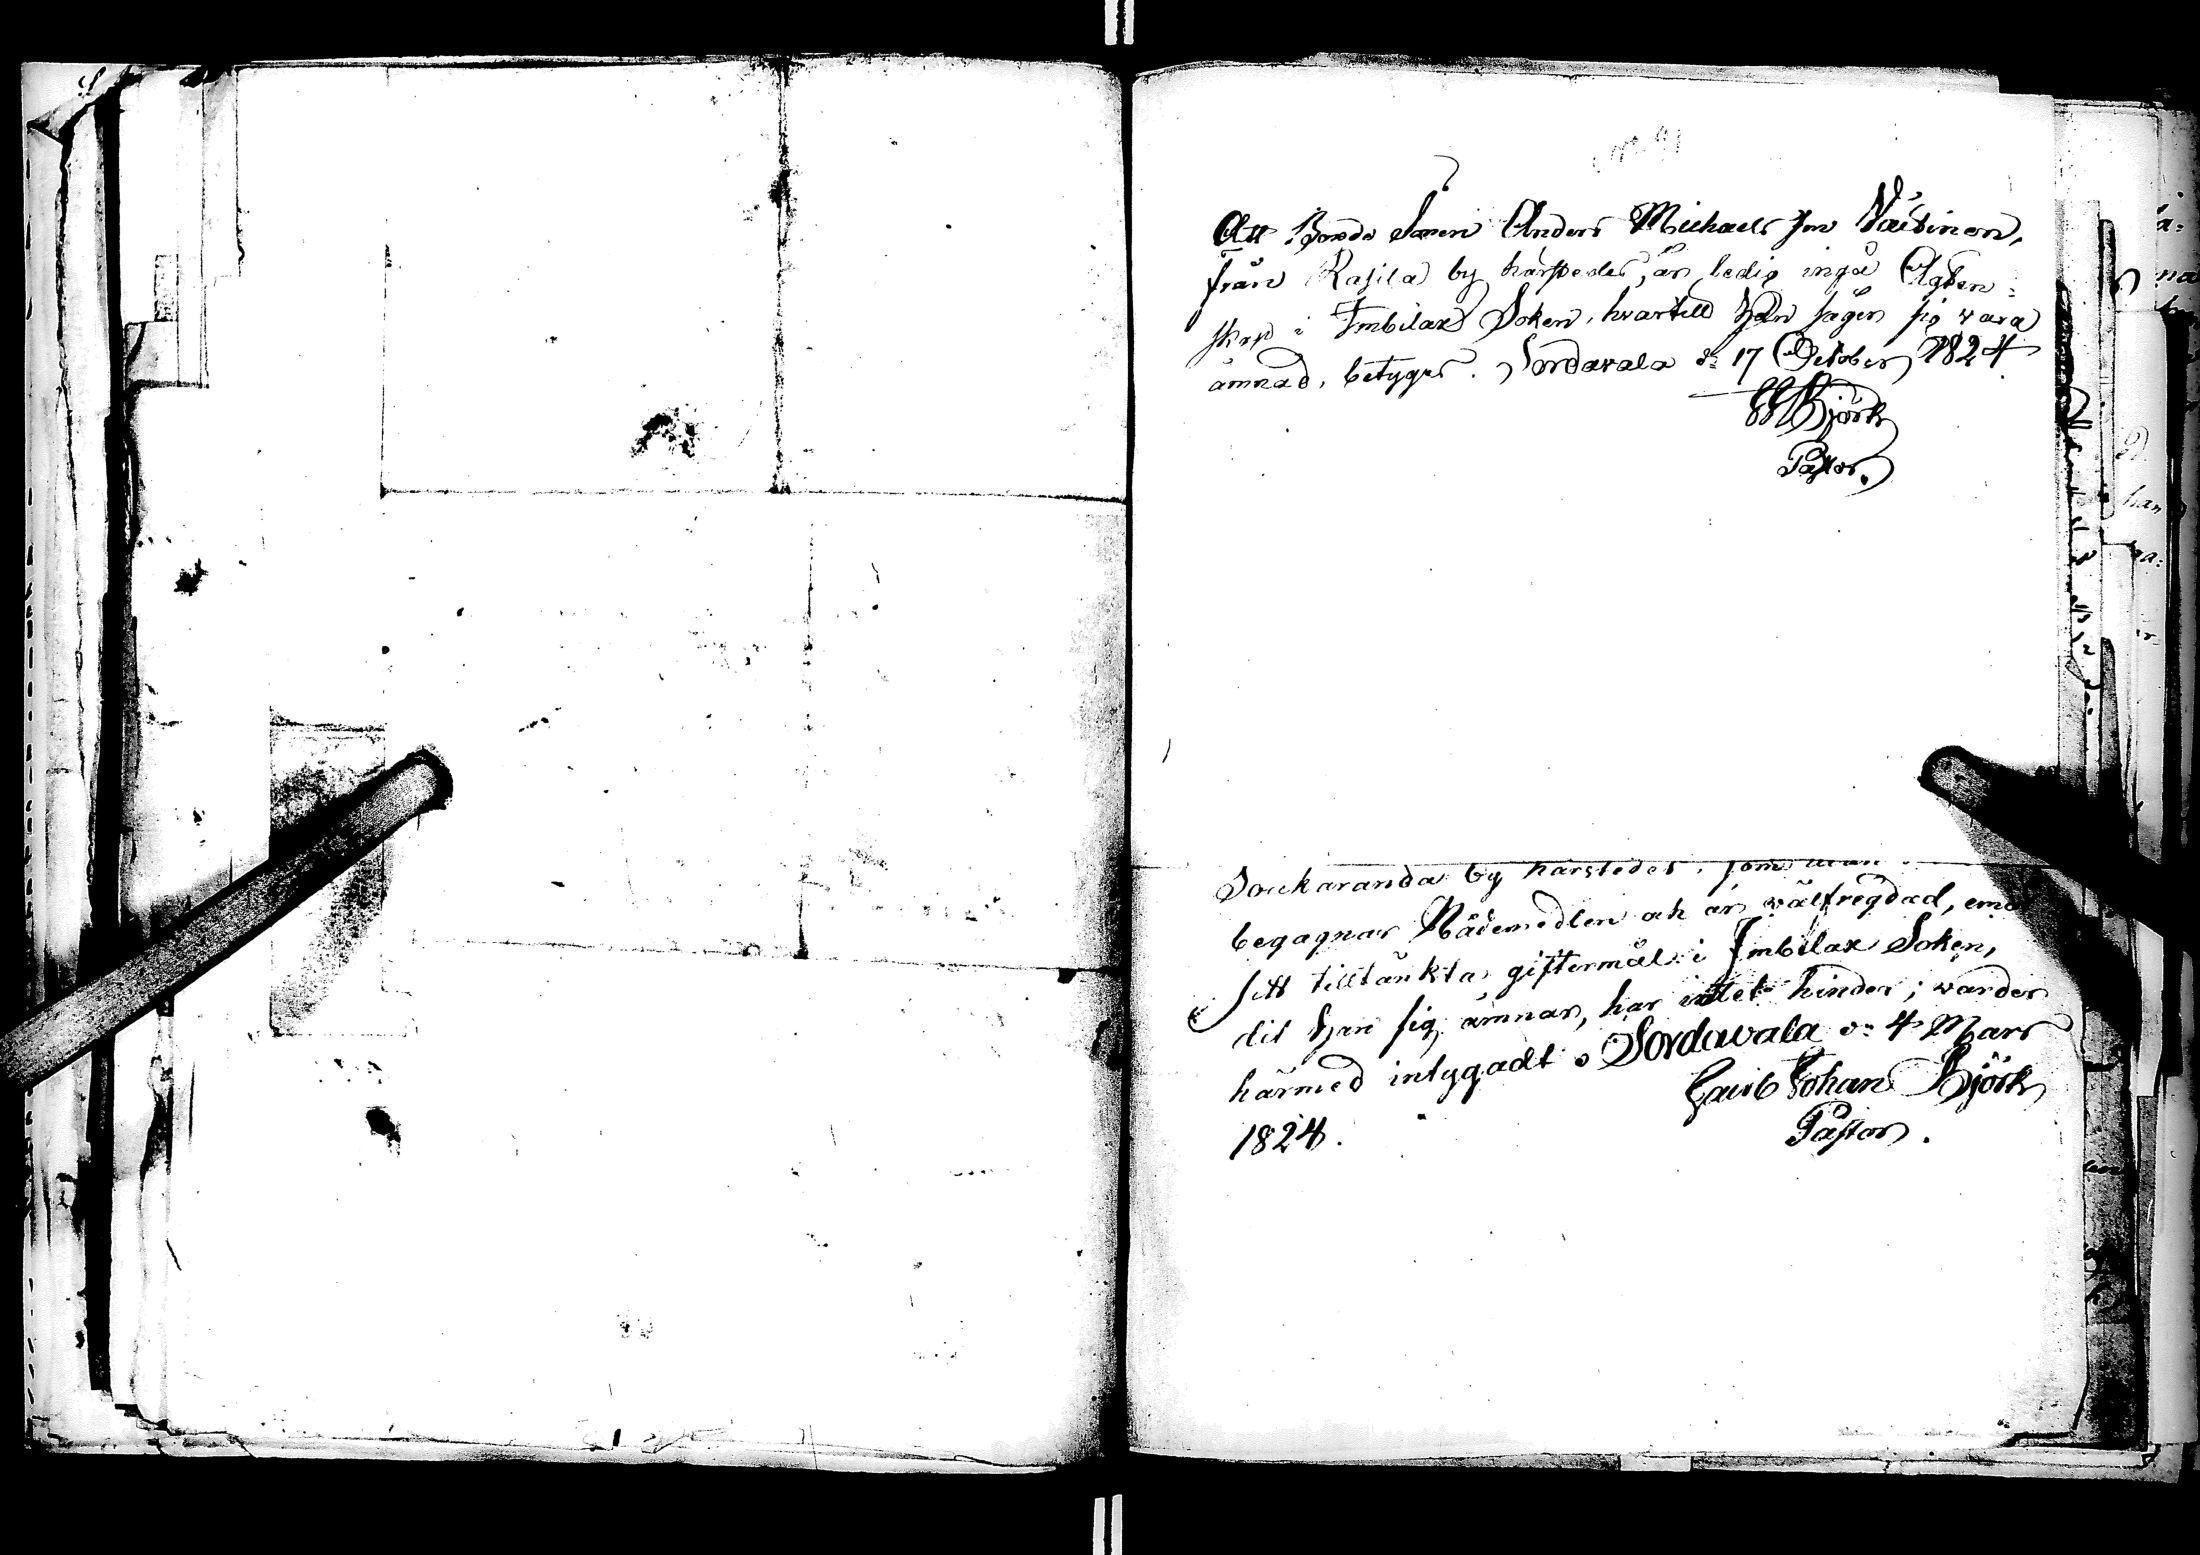 Att Bonde Sonen Anders Michaels son Väisinen,
från Rasila by härstedes, är ledig ingå Ägten-
skap i Imbilax Soken, hvartill Han säger sig vara
ämnad, betygas. Sordavala d: 17 October 1824.
Björk
Pastor.
Souckaranda by härstedes, som
begagnar Nådemedlen och är välfregdad, emot
sitt tilltänkta giftermål i Imbilax Soken,
dit Han sig ämnar, har intet hinder; varder
härmed intygadt. Sordavala d: 4 Mars
1824.
Gust Johan Björk
Pastor.